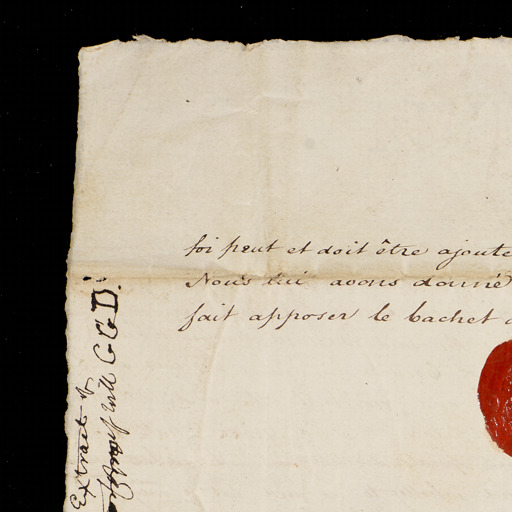 foi peut et doit être ajoute
Nous lui avons donné
fait apposer le Cachet
Extrait